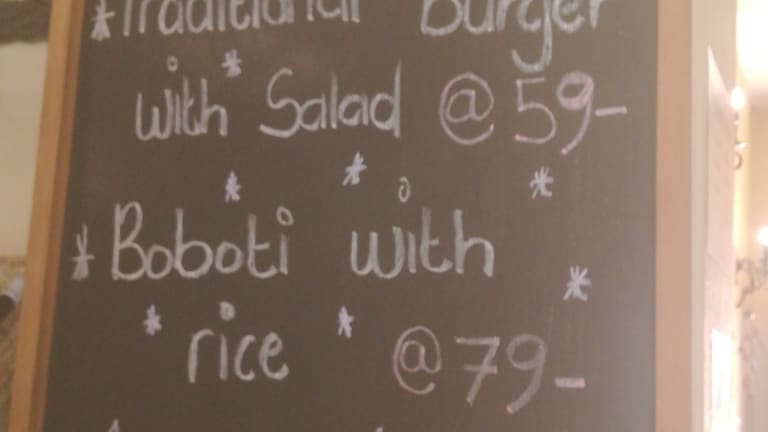 *Traditional Burger
with Salad @ 59-
* Boboti with
rice @ 79-